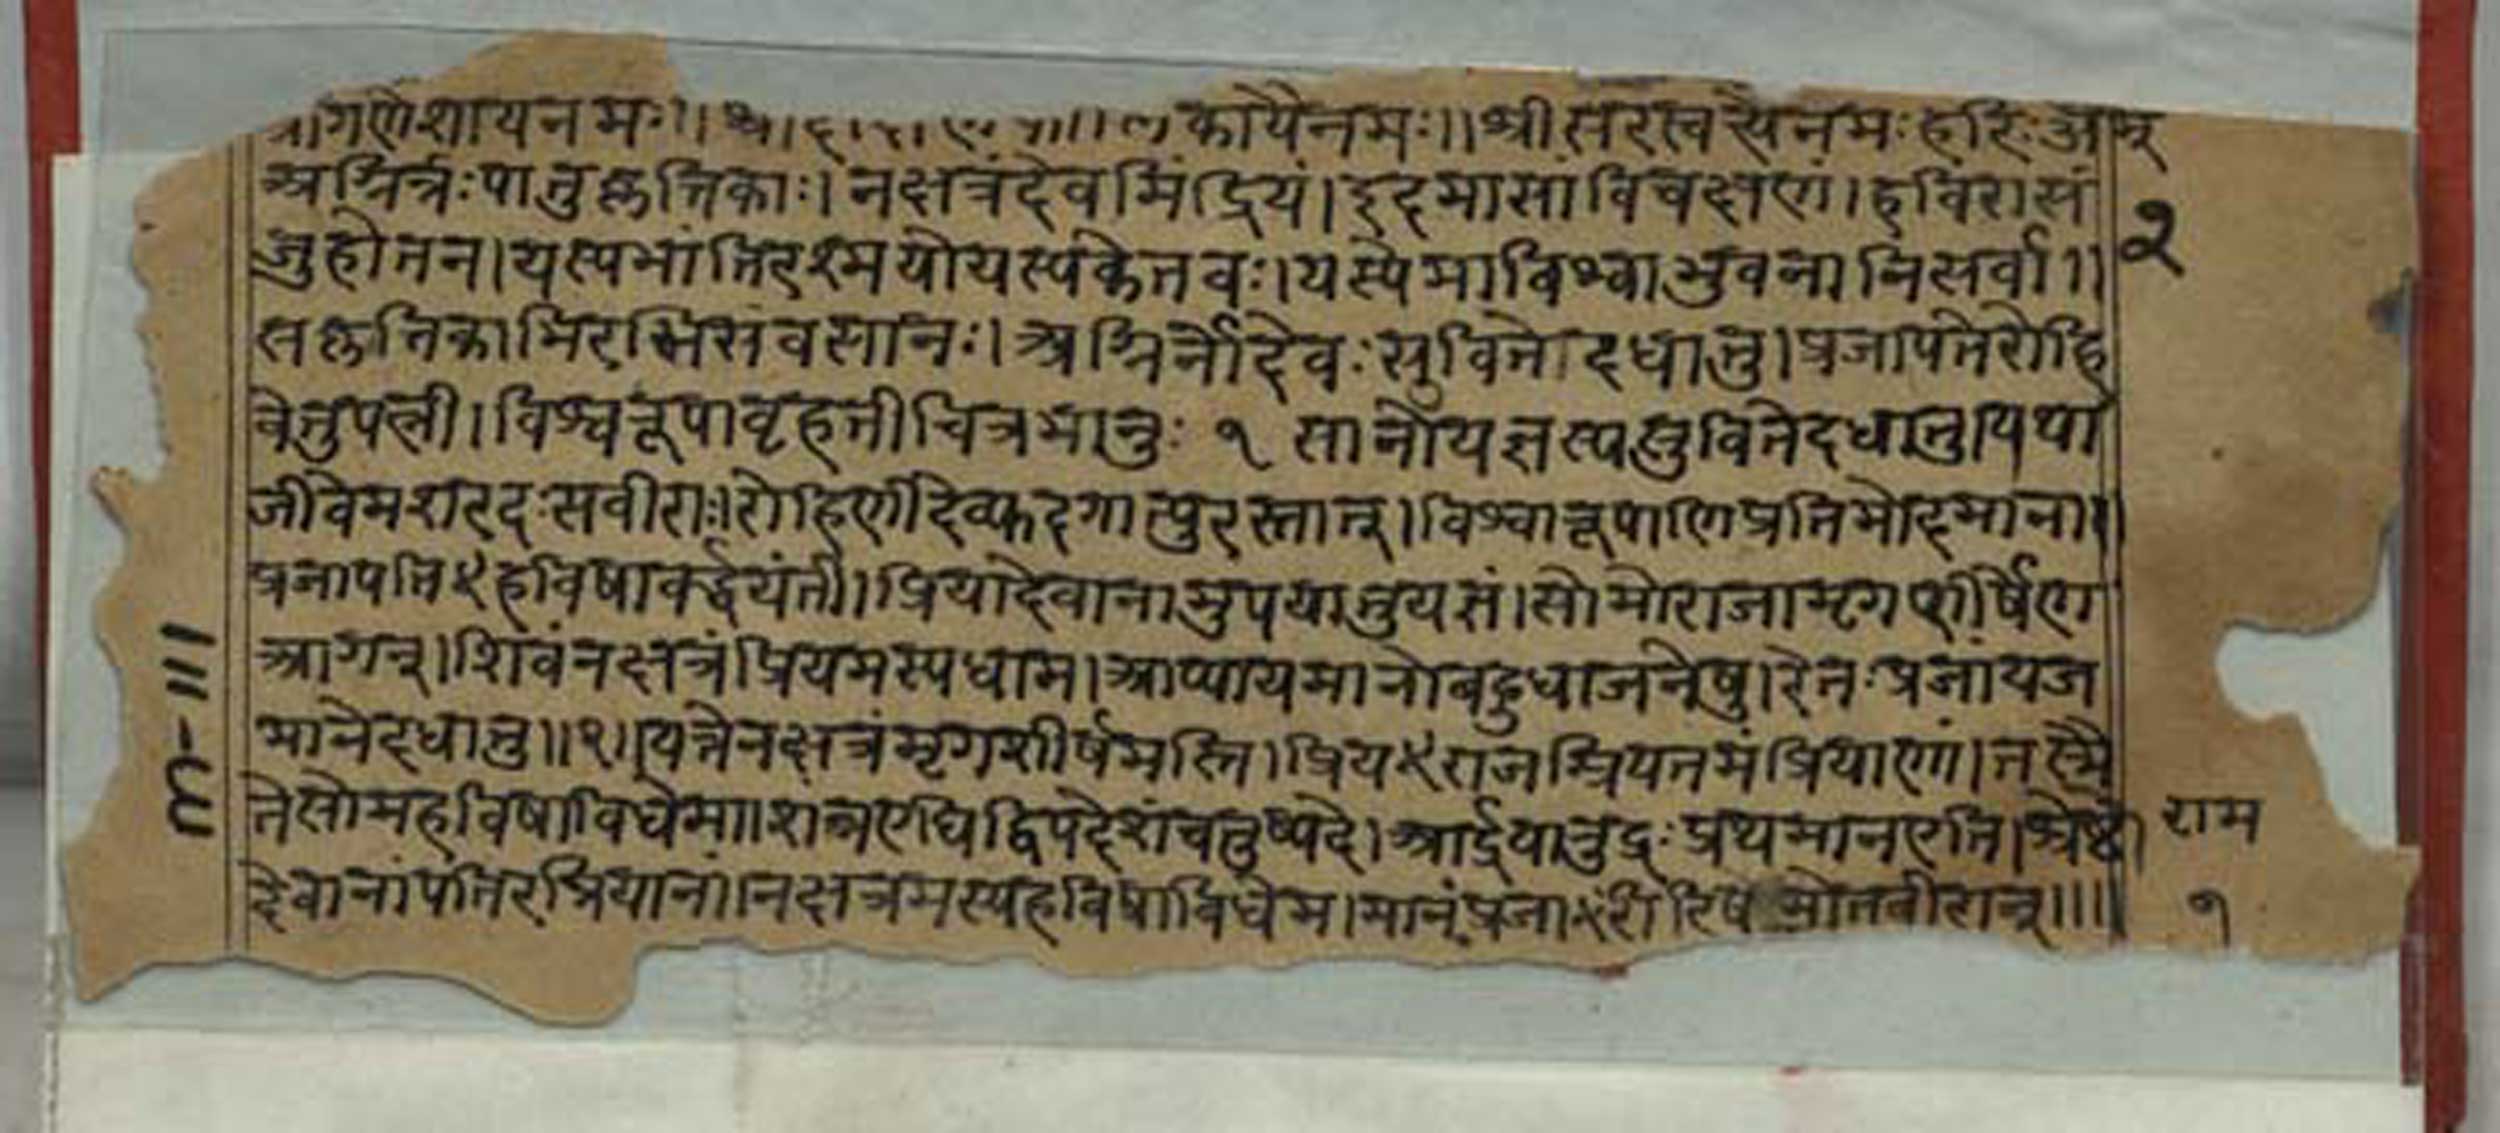 श्रीगणेशायनमः।। श्री कायैनमः।।श्रीसरस्वत्यैनमःहरिःओम्
अग्निर्नःपातुकृत्तिकाः।नक्षत्रंदेवमिंद्रियं।इदमासांविचक्षणं।हविरासं
२
जुहोतन।यस्यभांतिरश्मयोयस्यकेतवः।यस्येमाविश्वाभुवनानिसर्वा।।
सकृत्तिकाभिरभिसंवसानः।अग्निर्नोदेवःसुवितेदधातु।प्रजापतेरोहि
वेतुपत्नी।विश्वरूपावृहतीचित्रभानुः १ सानोयज्ञस्यसुवितेदधातु।यथा
जीवेमशरदःसवीराः।रोहिणीदेव्युदगात्पुरस्तात्।विश्वारूपाणिप्रतिमोदमाना।।
प्रजापति५हविषावर्द्धयंती।।प्रियादेवानामुपयातुयज्ञं।सोमोराजामृगशीर्षेण
आगन्।शिवंनक्षत्रंप्रियमस्यधाम।आप्यायमानोबहुधाजनेषु।रेतःप्रजांयज
मानेदधातु।।२।।यत्तेनक्षत्रंमृगशीर्षमस्ति।प्रिय५राजन्प्रियतमंप्रियाणां।तस्मै
तेसोमहविषाविधेम।।शन्नएधिद्विपदेशंचतुष्पदे।आर्द्रयारुद्रःप्रथमानएति।श्रेष्ठो
राम
देवानांपतिरघ्नियानां।नक्षत्रमस्यहविषाविधेम।मानःप्रजा५रीरिष मोतवीरान्।।।
१